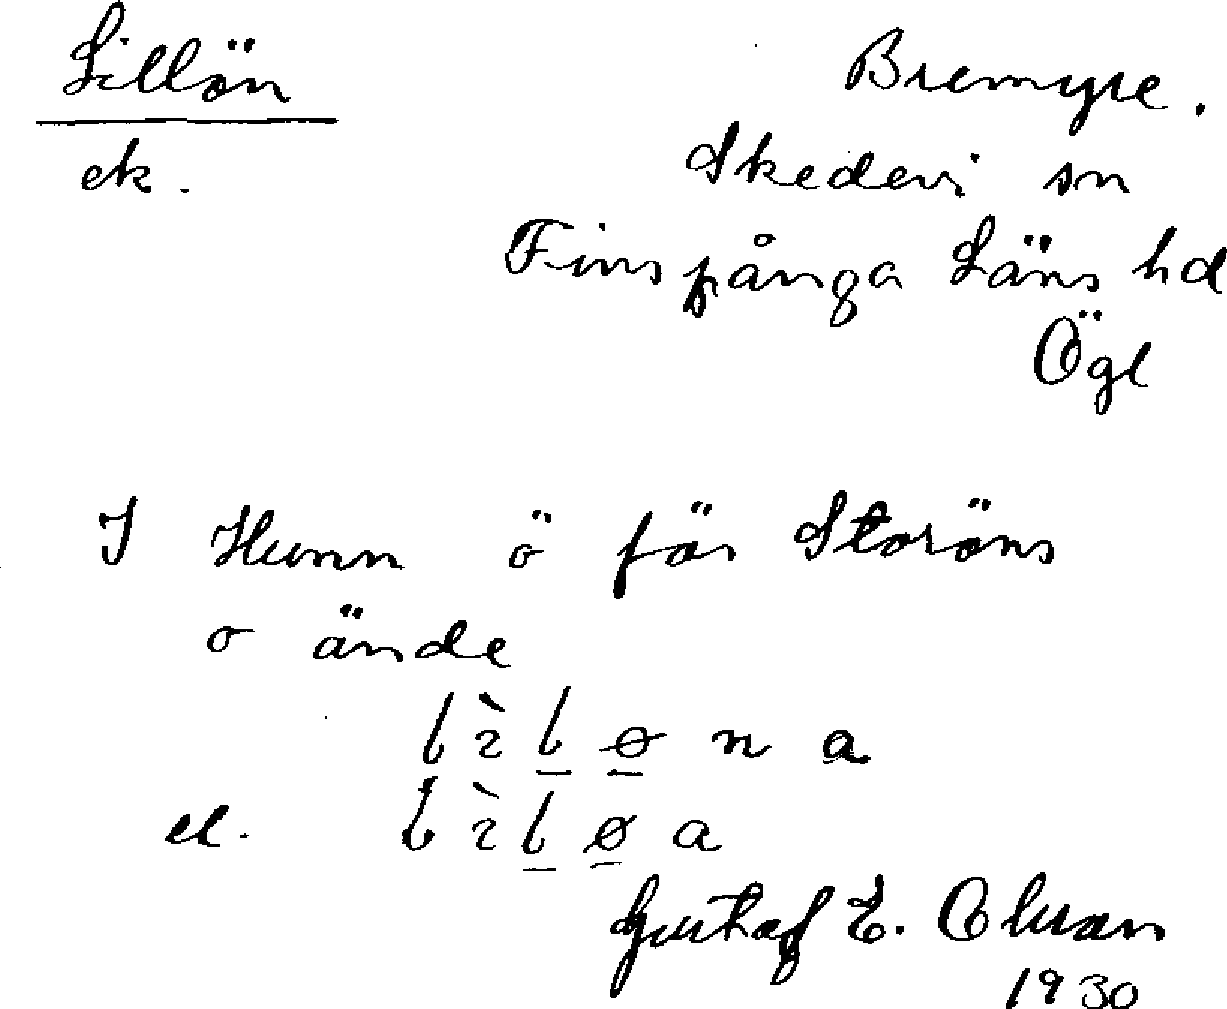 Lillön
ek.
Bremyre.
Skedevi sn
Finspånga Läns hd
Ögl
I Hunn ö för Storöns
o ände
lìløna
el. lìløa
Gustaf E. Olsson
1930